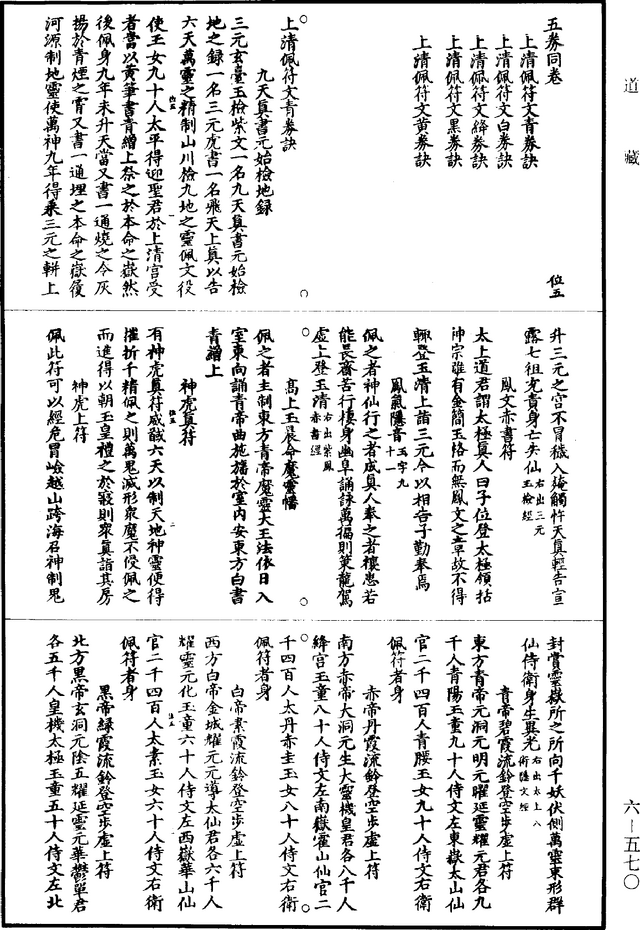 道藏
五券同卷
位五
上清佩符文青券訣
上清佩符文白券訣
上清佩符文絳券訣
上清佩符文黑券訣
上清佩符文黃券訣
上清佩符文青券訣
九天真書元始檢地錄
三元玄臺玉檢紫文一名九天真書元始檢
地之錄一名三元虎書一名飛天上真以告
六天萬靈之精制山川檢九地之靈佩文役
使玉女九十人太平得迎聖君於上清宮受
者當以黃筆書青繒上祭之於本命之嶽然
後佩身九年未升天當又書一通燒之令灰
揚於青煙之霄又書一通埋之本命之嶽復
河源制地靈使萬神九年得乘三元之軿上
升三元之宮不冒穢入殗觸忤天真輕告宣
露七祖充責身亡失仙右出三元玉檢經
鳳文赤書符
太上道君謂太極真人曰子位登太極領括
神宗雖有金簡玉絡而無鳳文之章故不得
輒登玉清上詣三元今以相告子勤奉焉
鳳氣隱音玉字九十一
佩之者神仙行之者成真人奉之者禳患若
能長齋苦行棲身幽阜誦詠萬徧則策龍駕
虛上登玉清右出紫鳳赤書經
高上玉晨命魔靈幡
佩之者主制東方青帝魔靈大王法依日入
室東向誦青帝曲施旛於室內安東方白書
青繒上
神虎真符
有神虎真符威馘六天以制天地神靈便得
摧折千精佩之則萬鬼滅形衆魔不侵佩之
而進得以朝玉皇禮之於寢則衆真詣其房
神虎上符
佩此符可以經危冒嶮越山跨海召神制鬼
封賞靈嶽所之所向千妖伏側萬靈束形群
仙侍衛身生異光右出太上八術隱文經
青帝碧霞流鈴登空步虛上符
東方青帝元洞元明元曜延靈耀元君各九
千人青陽玉童九十人侍文左東嶽太山仙
官二千四百人青腰玉女九十人侍文右衛
佩符者身
赤帝丹霞流鈴登空步虛上符
南方赤帝大洞元生太靈機皇君各八千人
絳宮玉童八十人侍文左南嶽霍山仙官二
千四百人太丹赤圭玉女八十人侍文右衛
佩符者身
白帝素霞流鈴登空步虛上符
西方白帝金城耀元元導太仙君各六千人
耀靈元化玉童六十人侍文左西嶽華山仙
官二千四百人太素玉女六十人侍文右衛
佩符者身
黑帝綠霞流鈴登空步虛上符
北方黑帝玄洞元陰五耀延靈元華鬱單君
各五千人皇機太極玉童五十人侍文左北
六—五七〇